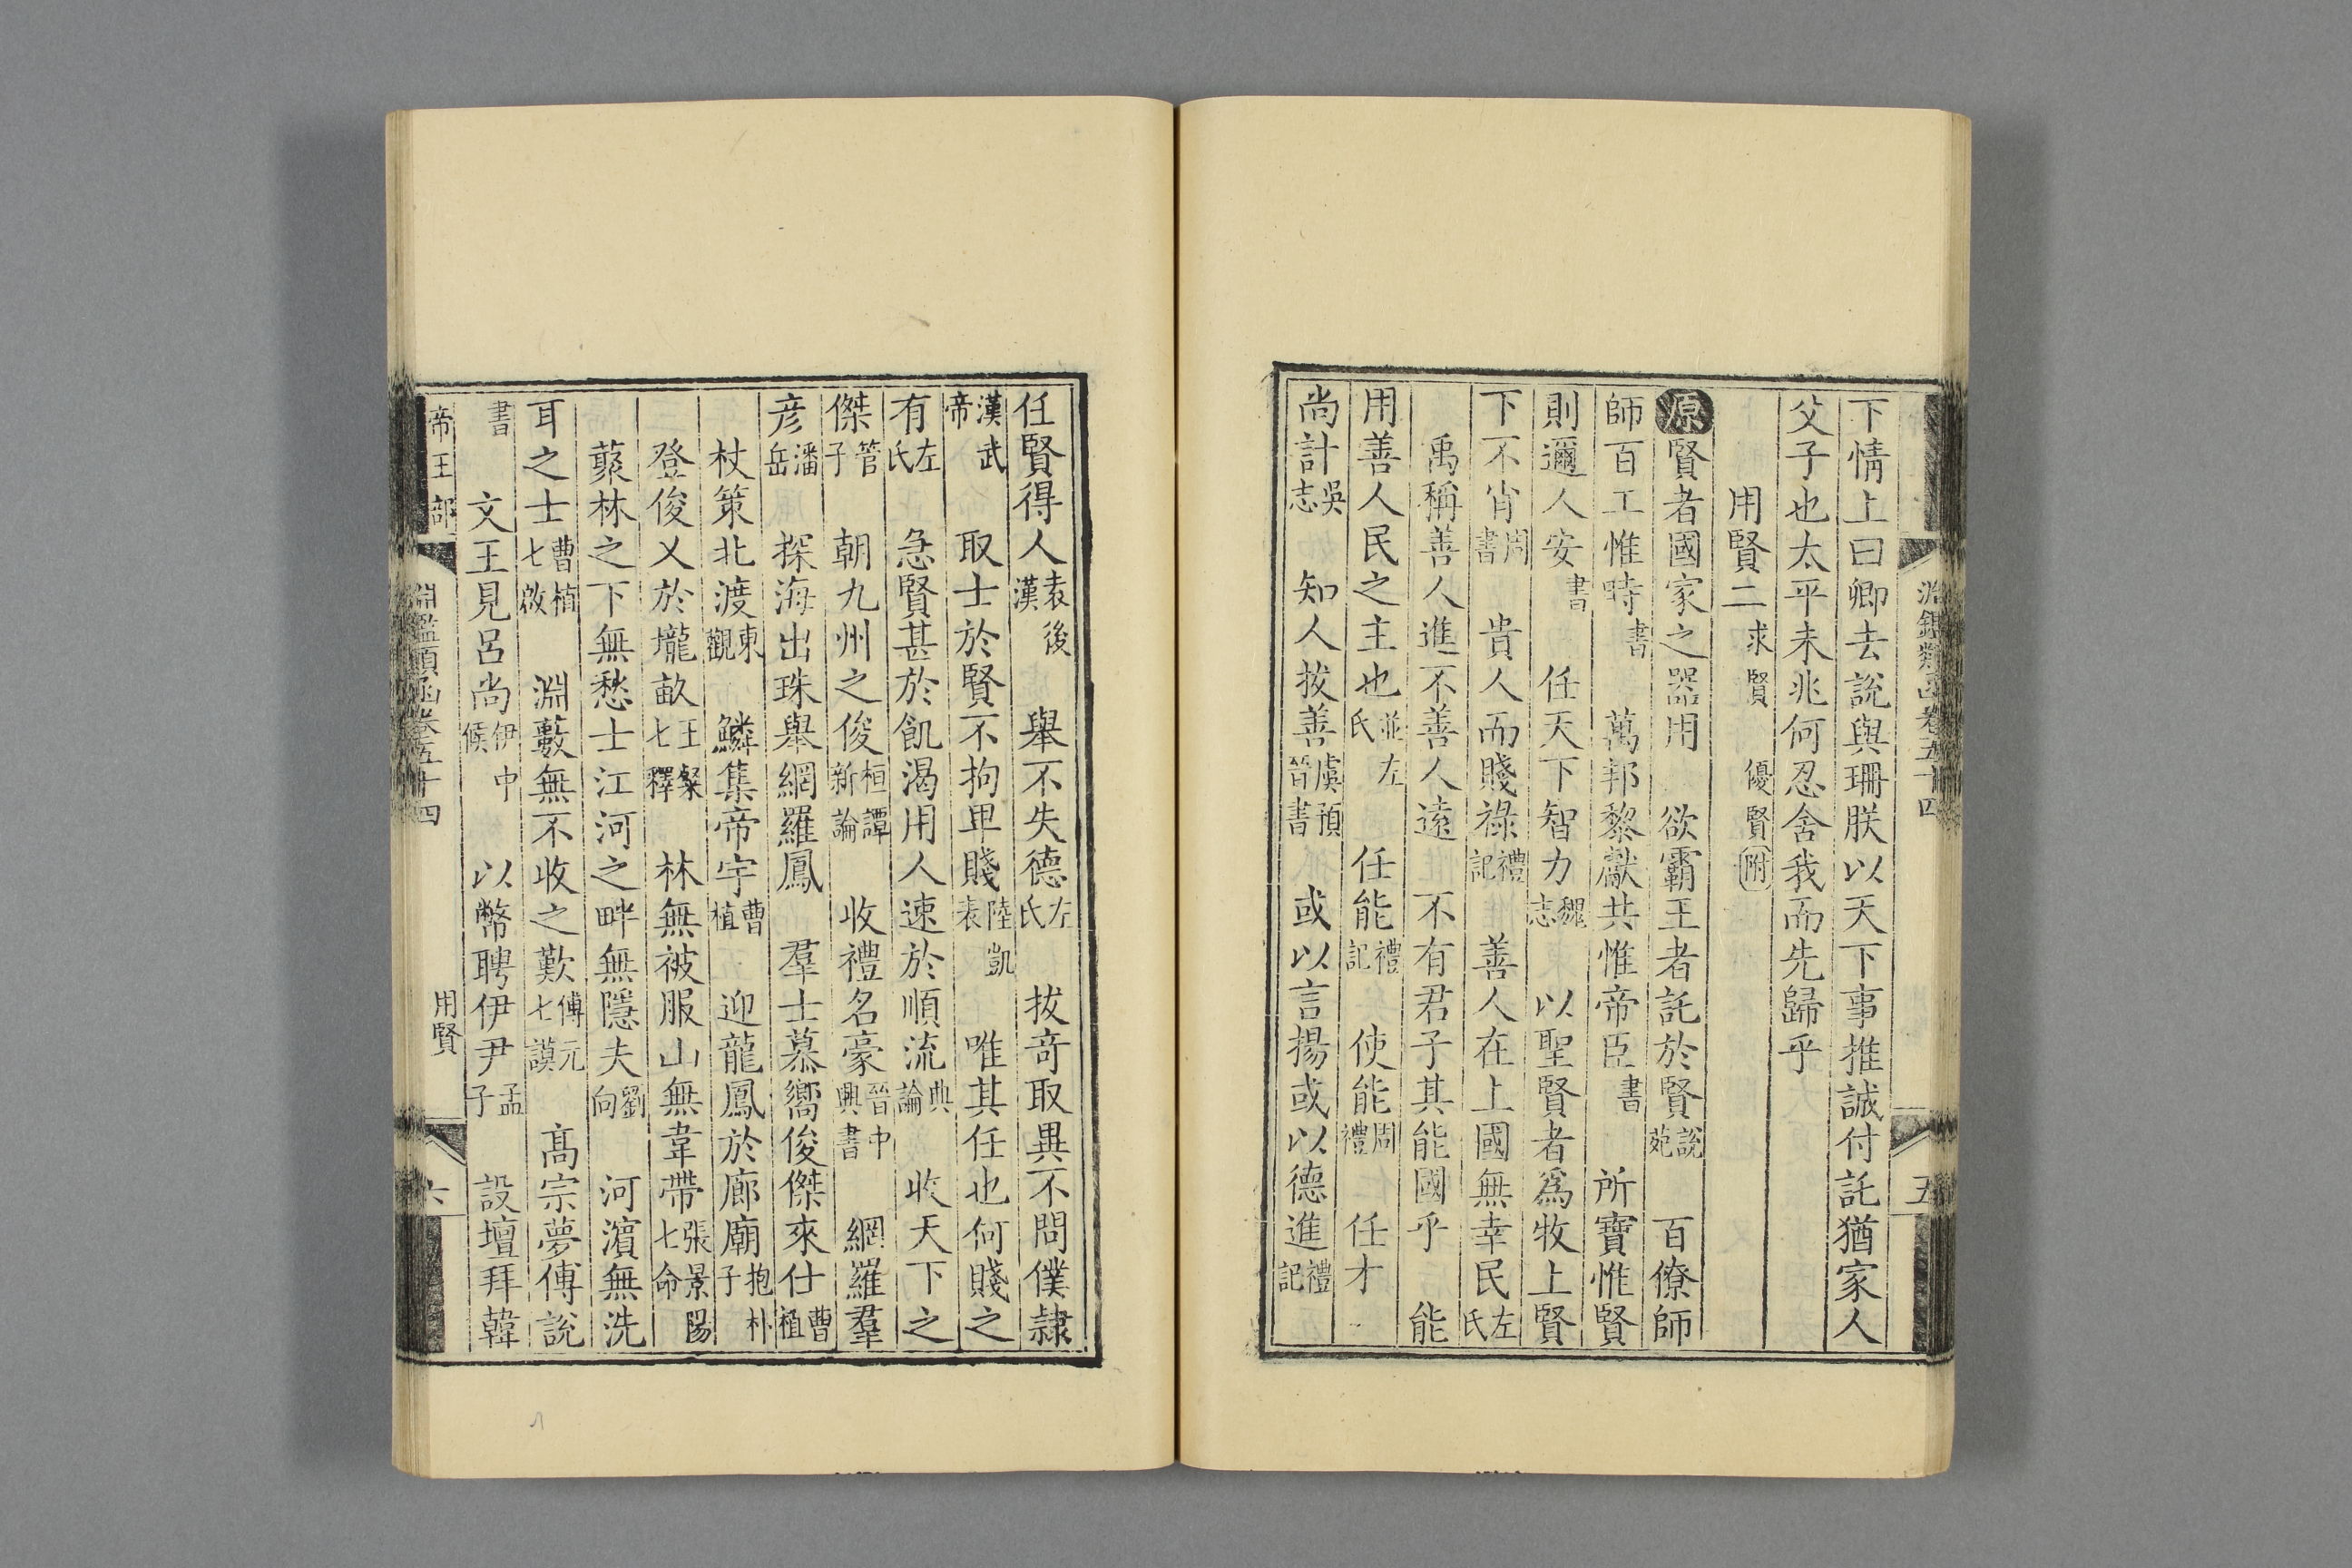 淵鑑類函卷五十四 五
下情上曰卿去說與珊朕以天下事推誠付託猶家人
父子也太平未兆何忍舍我而先歸乎
用賢二求賢 優賢附
原賢者國家之器用 欲霸王者託於賢說苑 百僚師
師百工惟時書 萬邦黎獻共惟帝臣書 所寶惟賢
則邇人安書 任天下智力魏志 以聖賢者爲牧上賢
下不肖周書 貴人而賤祿禮記 善人在上國無幸民左氏
禹稱善人進不善人遠 不有君子其能國乎 能
用善人民之主也並左氏 任能禮記 使能周禮 任才
尚計吳志 知人拔善虞預晉書 或以言揚或以德進禮記
任賢得人袁後漢 舉不失德左氏 拔奇取異不問僕隷
漢武帝 取士於賢不拘卑賤陸凱表 唯其任也何賤之
有左氏 急賢甚於飢渴用人速於順流典論 收天下之
傑管子 朝九州之俊桓譚新論 收禮名豪晉中興書 網羅羣
彥潘岳 探海出珠舉網羅鳳 羣士慕嚮俊傑來仕曹植
杖策北渡東觀 鱗集帝宇曹植 迎龍鳳於廊廟抱朴子
登俊乂於壠畝王粲七釋 林無被服山無韋帶張景陽七命
藂林之下無愁士江河之畔無隱夫劉向 河濵無洗
耳之士曹植七啟 淵藪無不收之歎傅元七謨 髙宗夢傅說
書 文王見呂尚伊中候 以幣聘伊尹孟子 設壇拜韓
帝王部 淵鑑類函卷五十四 用賢 六